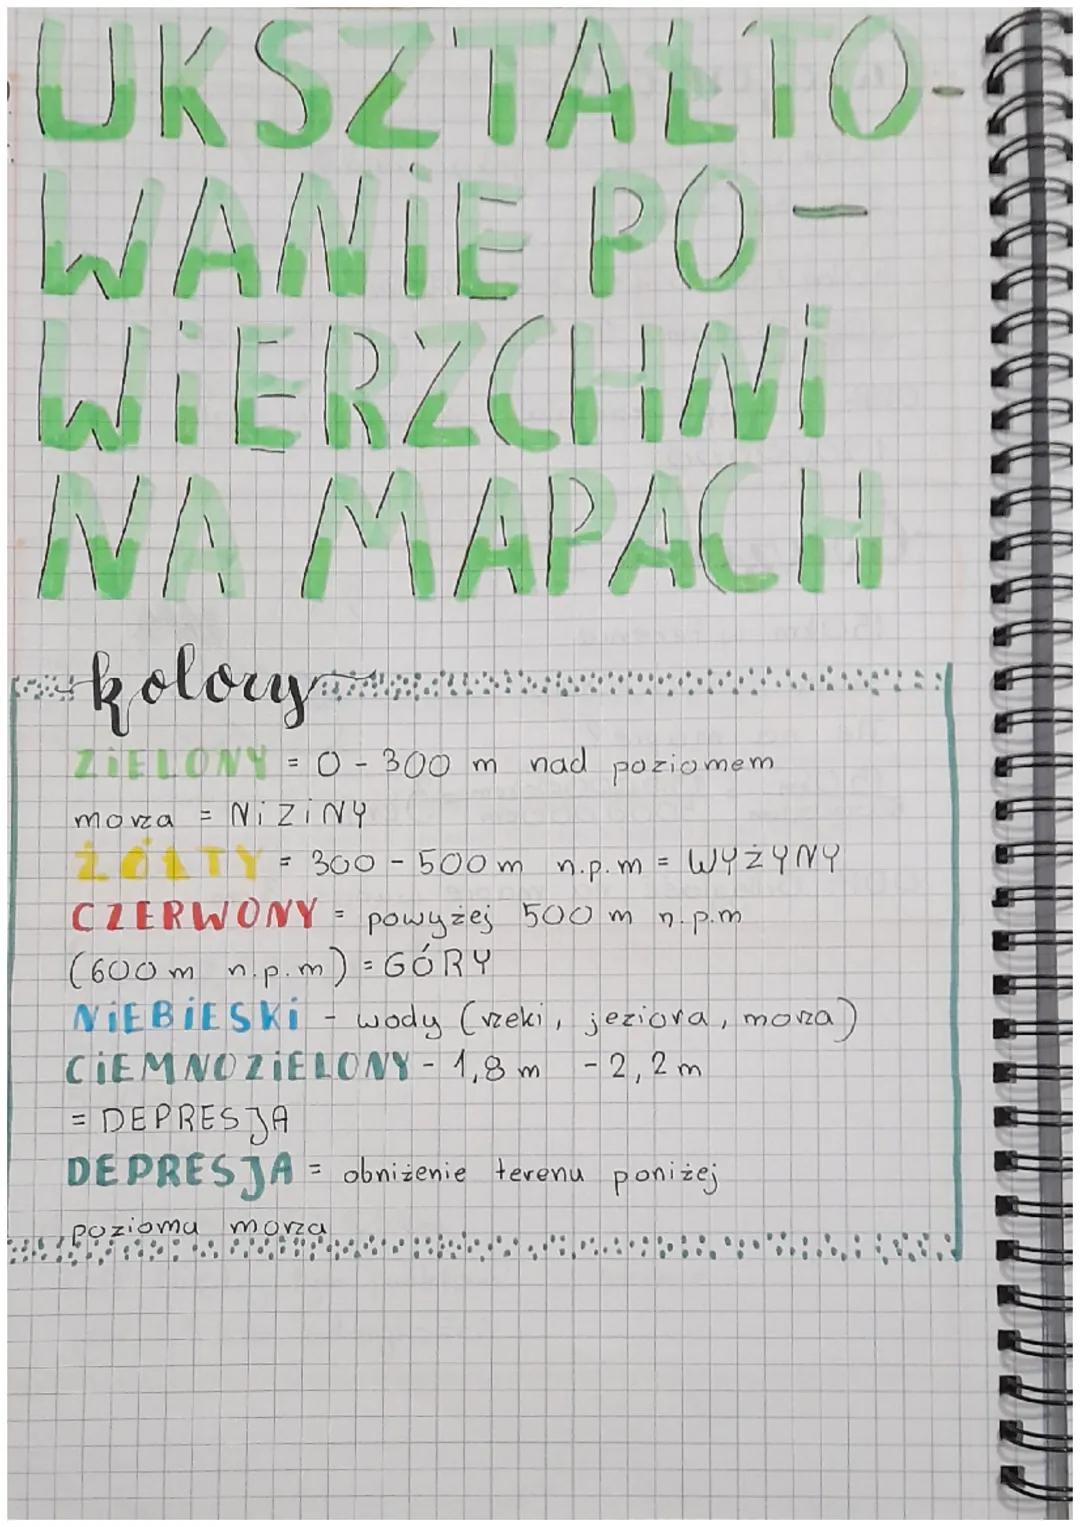 UKSZTAŁTO-
WANiE PO-
WiERZCHNi
NA MAPACH
kolory
ZiELONY = 0 - 300 m nad poziomem
morza = NiZiNY
ŻÓŁTY = 300 - 500 m n.p.m = WYŻYNY
CZERWONY = powyżej 500 m n.p.m
(600 m n.p.m) = GÓRY
NiEBiESKi - wody (rzeki, jeziora, morza)
CiEMNOZiELONY - 1,8 m - 2,2 m
= DEPRESJA
DEPRESJA = obniżenie terenu poniżej
poziomu morza